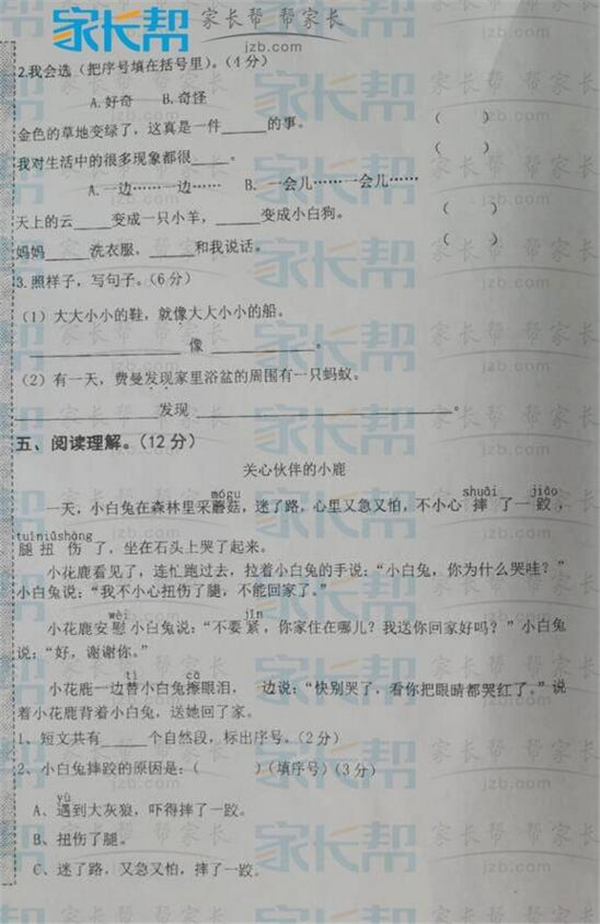 家长帮 家长帮 帮家长
jzb.com
2.我会选(把序号填在括号里)。(4分)
A.好奇 B.奇怪
金色的草地变绿了，这真是一件_____的事。 ( )
我对生活中的很多现象都很_____。 ( )
A.一边……一边…… B.一会儿……一会儿……
天上的云_____变成一只小羊，_____变成小白狗。 ( )
妈妈_____洗衣服，_____和我说话。 ( )
3.照样子，写句子。(6分)
(1)大大小小的鞋，就像大大小小的船。
_____像_____。
(2)有一天，费曼发现家里浴盆的周围有一只蚂蚁。
_____发现_____。
五、阅读理解。(12分)
关心伙伴的小鹿
mógu shuāi jiāo
一天，小白兔在森林里采蘑菇，迷了路，心里又急又怕，不小心摔了一跤，
tuǐniǔshāng
腿扭伤了，坐在石头上哭了起来。
小花鹿看见了，连忙跑过去，拉着小白兔的手说：“小白兔，你为什么哭哇？”
小白兔说：“我不小心扭伤了腿，不能回家了。”
wèi jǐn
小花鹿安慰小白兔说：“不要紧，你家住在哪儿？我送你回家好吗？”小白兔
说：“好，谢谢你。”
tì cā
小花鹿一边替小白兔擦眼泪， 边说：“快别哭了，看你把眼睛都哭红了。”说
着小花鹿背着小白兔，送她回了家。
1、短文共有_____个自然段，标出序号。(2分)
2、小白兔摔跤的原因是：( )(填序号)(3分)
yù
A、遇到大灰狼，吓得摔了一跤。
B、扭伤了腿。
C、迷了路，又急又怕，摔了一跤。